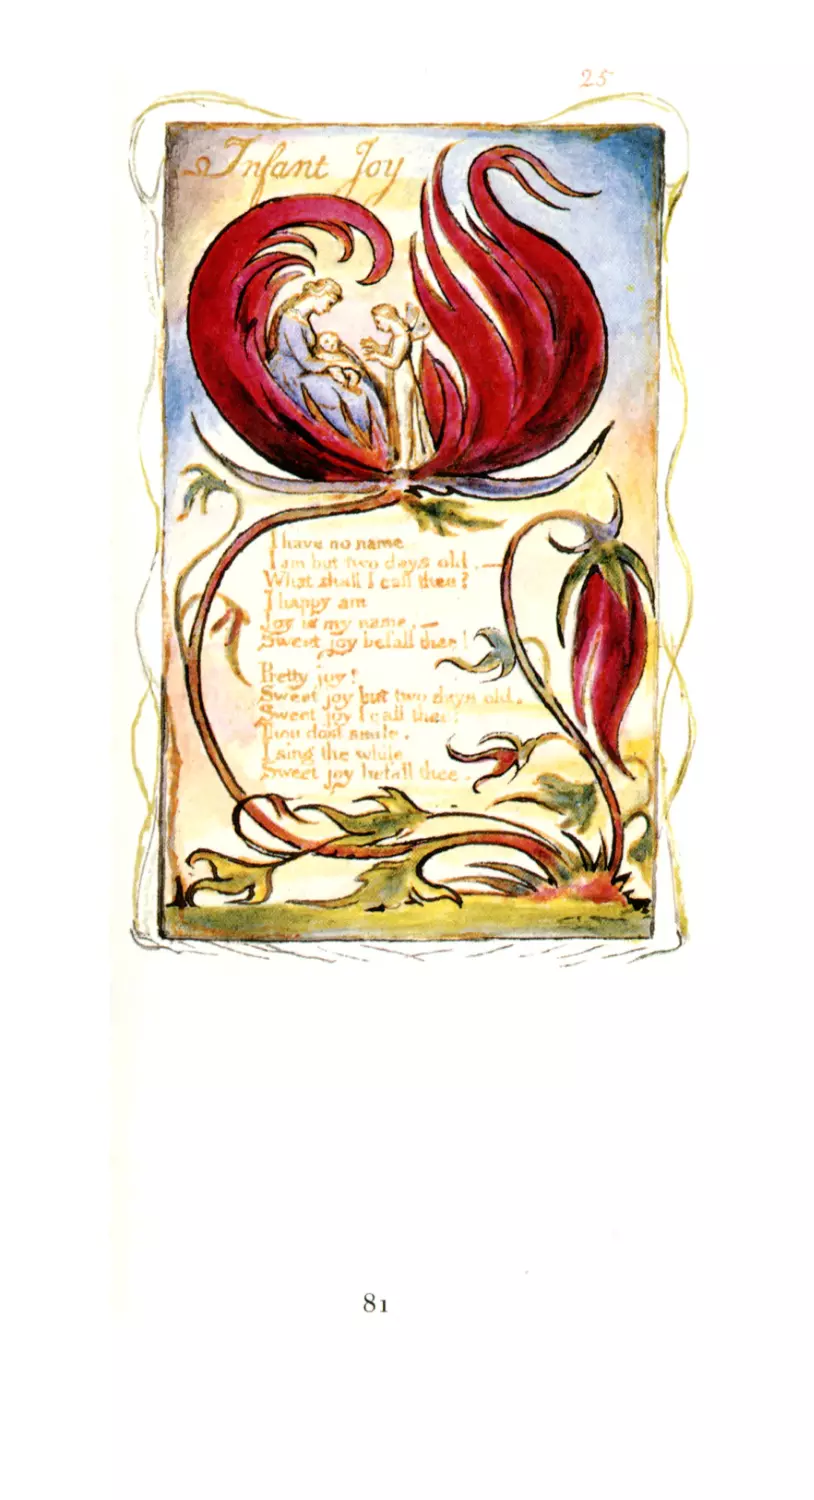 25
Infant Joy
I have no name
I am but two days old. —
What shall I call thee?
I happy am
Joy is my name. —
Sweet joy befall thee!
Pretty joy!
Sweet joy but two days old.
Sweet joy I call thee:
Thou dost smile.
I sing the while
Sweet joy befall thee.
81